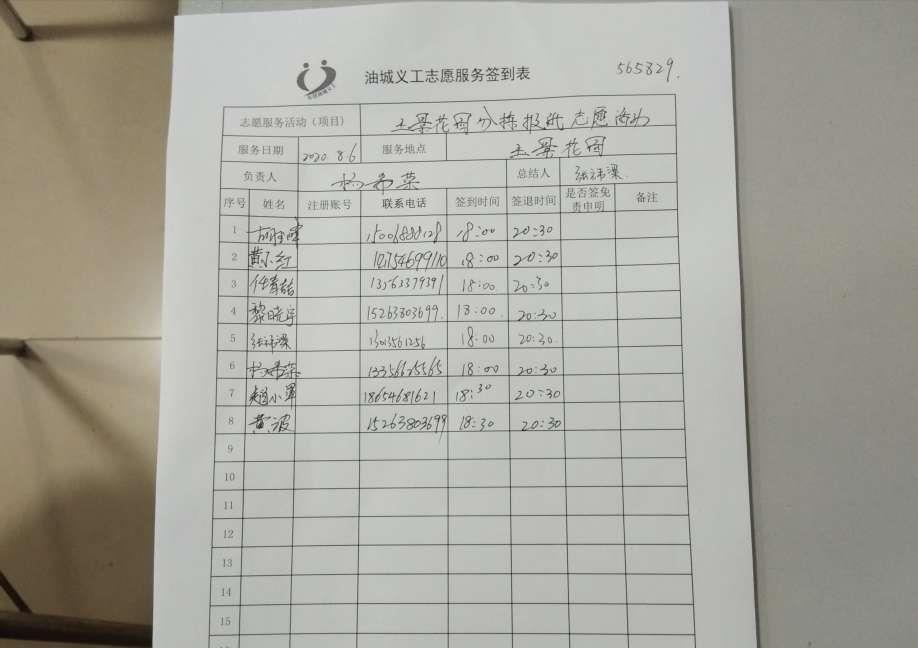 油城义工志愿服务签到表 565829.
志愿服务活动（项目） 分拣报纸志愿活动
服务日期 2020 8.6 服务地点 花园
负责人 杨希荣 总结人 张祎梁
序号 姓名 注册账号 联系电话 签到时间 签退时间 是否签免责申明 备注
1 18:00 20:30
2 黄小红 18:00 20:30
3 13563379391 18:00 20:30
4 黎晓宇 15263803699. 18:00. 20:30
5 张祎梁 18:00 20:30.
6 杨希荣 18:00 20:30
7 赵小军 18654681621 18:30 20:30
8 黄波 15263803699 18:30 20:30
9
10
11
12
13
14
15